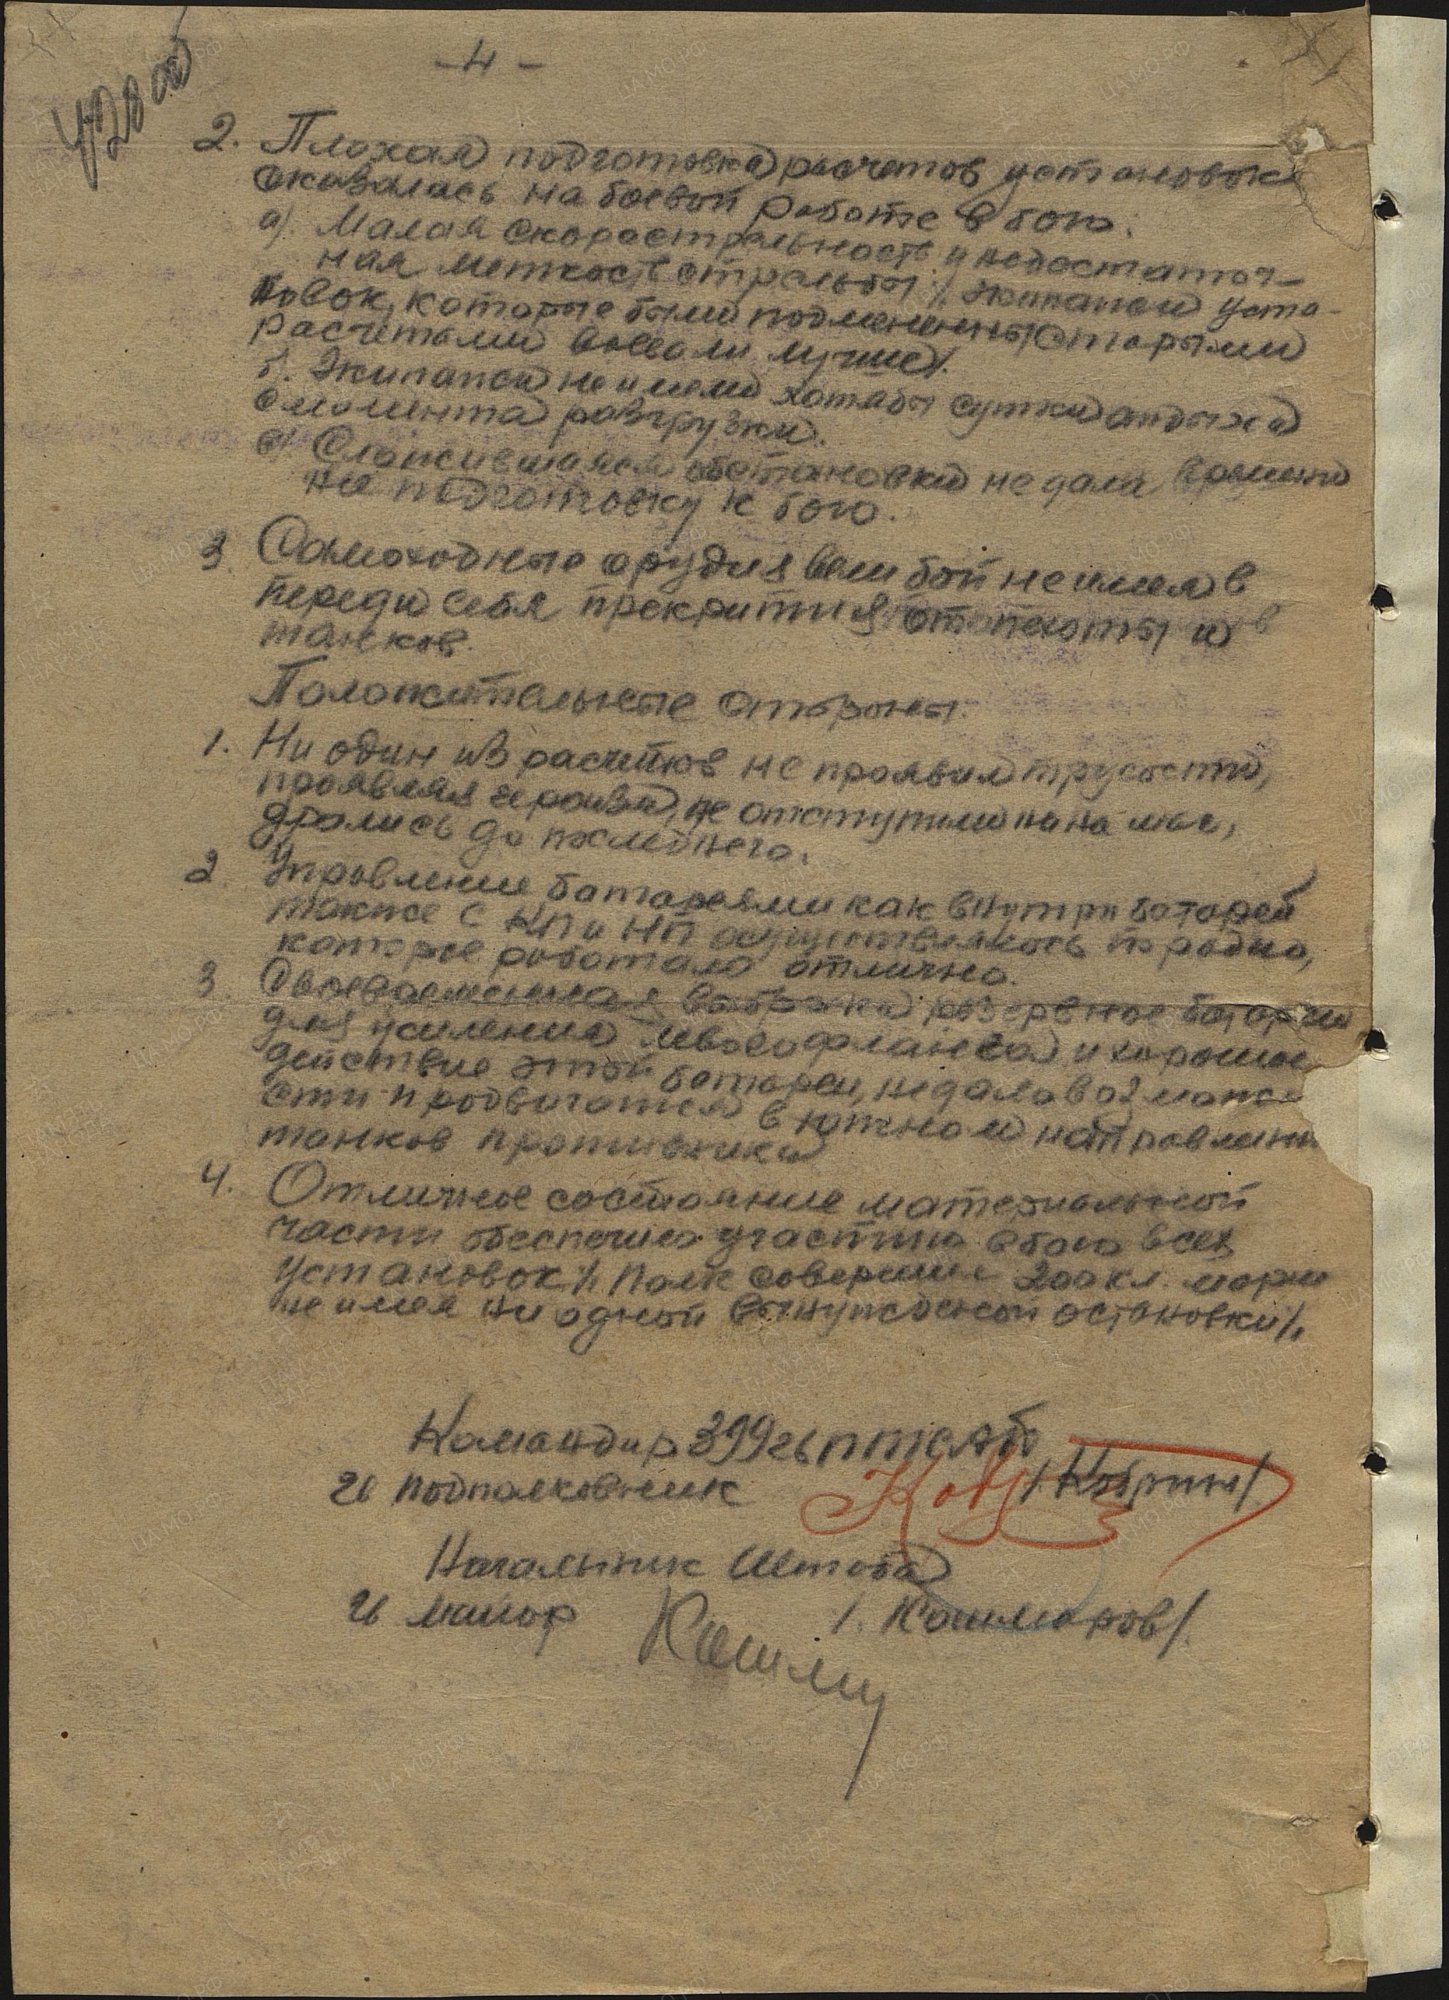 - 4 -
2. Плохая подготовка расчетов установок
сказалась на боевой работе в бою:
а). Малая скорострельность и недостаточ-
ная меткость стрельбы /. Экипажи уста-
новок, которые были подменены старыми
расчетами воевали лучше/.
б. Экипажи не имели хотябы сутки отдыха
с момента разгрузки.
в) Сложившаяся обстановка не дала времени
на подготовку к бою.
3. Самоходные орудия вели бой не имея в
переди себя прекрытия от пехоты и
танков.
Положительные стороны.
1. Ни один из расчетов не проявил трусости,
проявляя героизм, не отступили ни на шаг,
дрались до последнего.
2. Управление батареями как внутри батарей
также с КП и НП осуществлялось по радио,
которое работало отлично.
3. Своевременная выброска резервное батареи
для усиления левого фланга и хорошие
действие этой батареи, не дало возможно
сти продвигатся в южном направлении
танков противника
4. Отличное состояние материальной
части обеспечило участию в бою всех
установок /. Полк совершил 200 кл. марш
не имея ни одной вынужденной остановки/.
Командир 399 гв птсап
гв подполковник Коб /Кобрин/
Начальник Штаба
гв майор Кашму /. Кашмаров/.